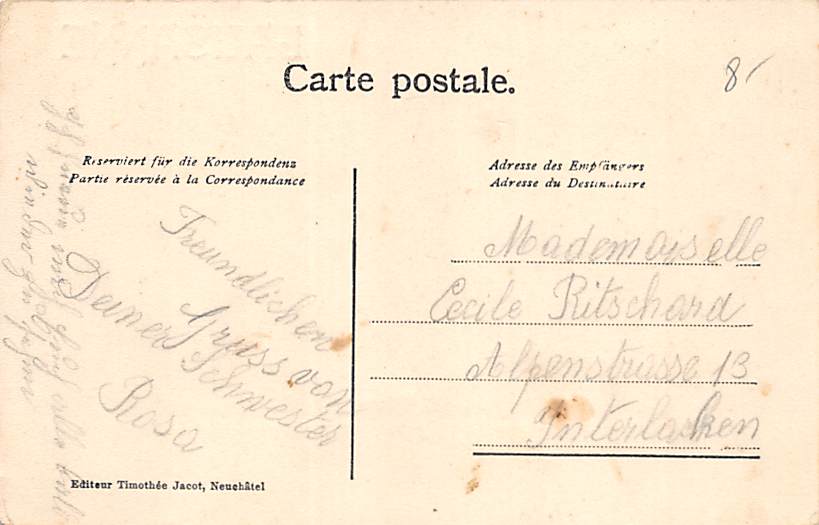 Carte postale.
8
Reserviert für die Korrespondenz
Partie réservée à la Correspondance
Adresse des Empfängers
Adresse du Destinataire
Freundlichen
Gruss von
Deiner Schwester
Rosa
Mademoyselle
Cecile Ritschard
Alpenstrasse 13
Interlacken
Editeur Timothée Jacot, Neuchâtel